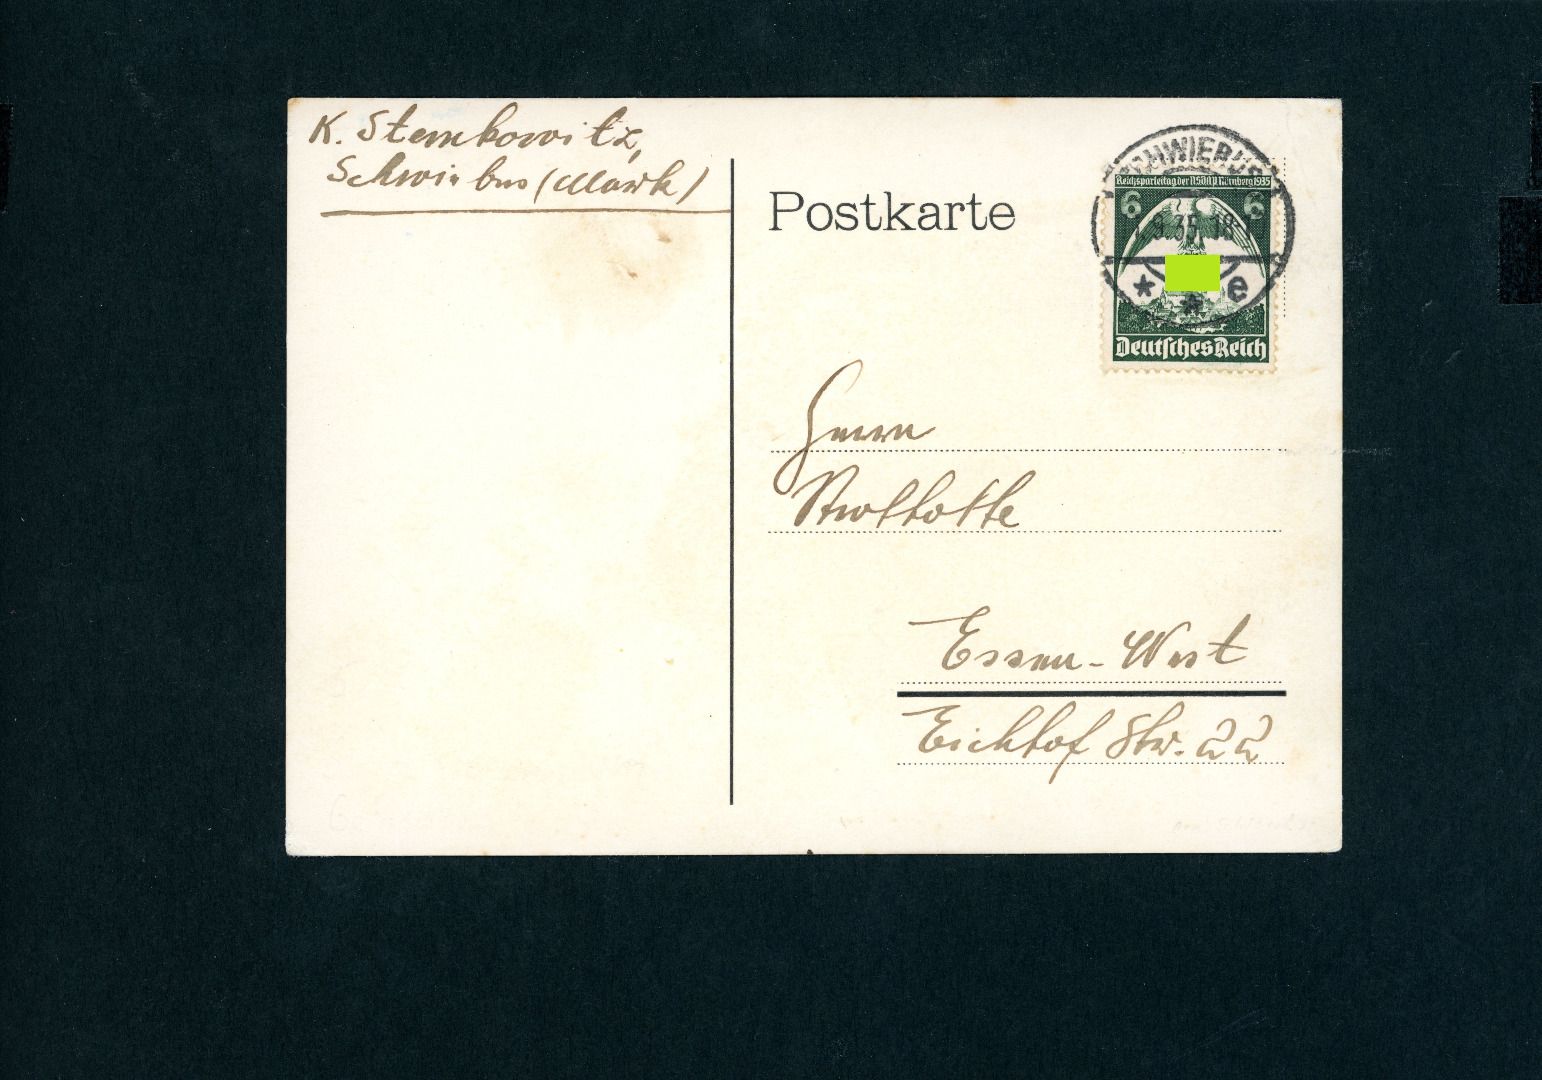 K. Stemkowitz,
Schwiebus (Mark)
Postkarte
SCHWIEBUS
Reichsparteitag der NSDAP Nürnberg 1935
6 6
9.35. 18
* * e
Deutsches Reich
Herrn
Essen-West
Eickhof Str. 22